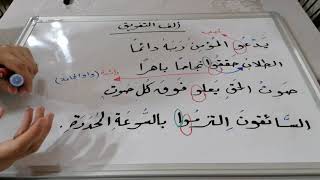 ألف التفريق
سبب
يدعو المؤمن ربه دائما
الطلاب حققوا نجاحا باهرا
زائدة (واو الجماعة)
صوت الحق يعلو فوق كل صوت
السائقون التزموا بالسرعة المحددة.